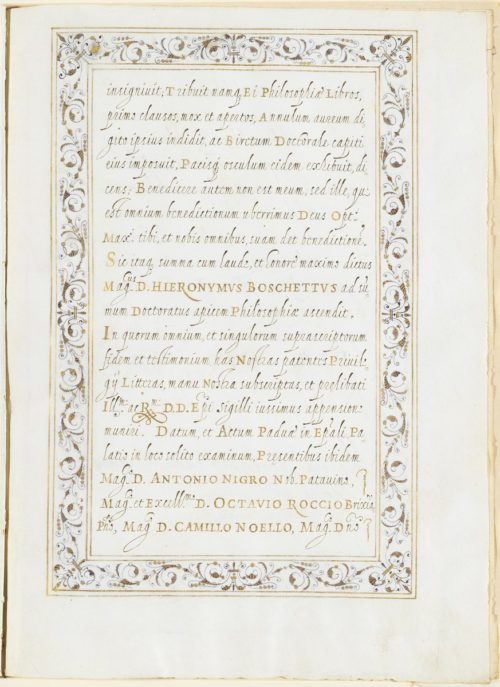 insigniuit; Tribuit namq; Ei Philosophiæ Libros,
primo clausos, mox et apertos, Annulum aureum di,
gito ipsius indidit, ac Birctum Doctorale capiti
eius imposuit, Pacisq; osculum eidem exhibuit, di,
cens; Benedicere autem non est meum, sed ille, qui
est omnium benedictionum uberrimus Deus Opt.
Max. tibi, et nobis omnibus, suam det benedictionē.
Sic itaq; summa cum laude, et honore maximo dictus
Mag.cus D. HIERONYMVS BOSCHETTVS ad su,
mum Doctoratus apicem Philosophiæ ascendit.
In quorum omnium, et singulorum suprascriptorum
fidem et testimonium has Nostras patentes Priuile,
gij Litteras, manu Nostra subscriptas, et prelibati
Ill.mi ac R.mi D.D. Epi sigilli iussimus appensione
muniri. Datum, et Actum Paduæ in Epali Pa,
latio in loco solito examinum, Presentibus ibidem
Mag.co D. ANTONIO NIGRO Nob. Patauino,
Mag.co et Excell.mo D. OCTAVIO ROCCIO Brixiā,
Mag.co D. CAMILLO NOELLO, Mag. Dño